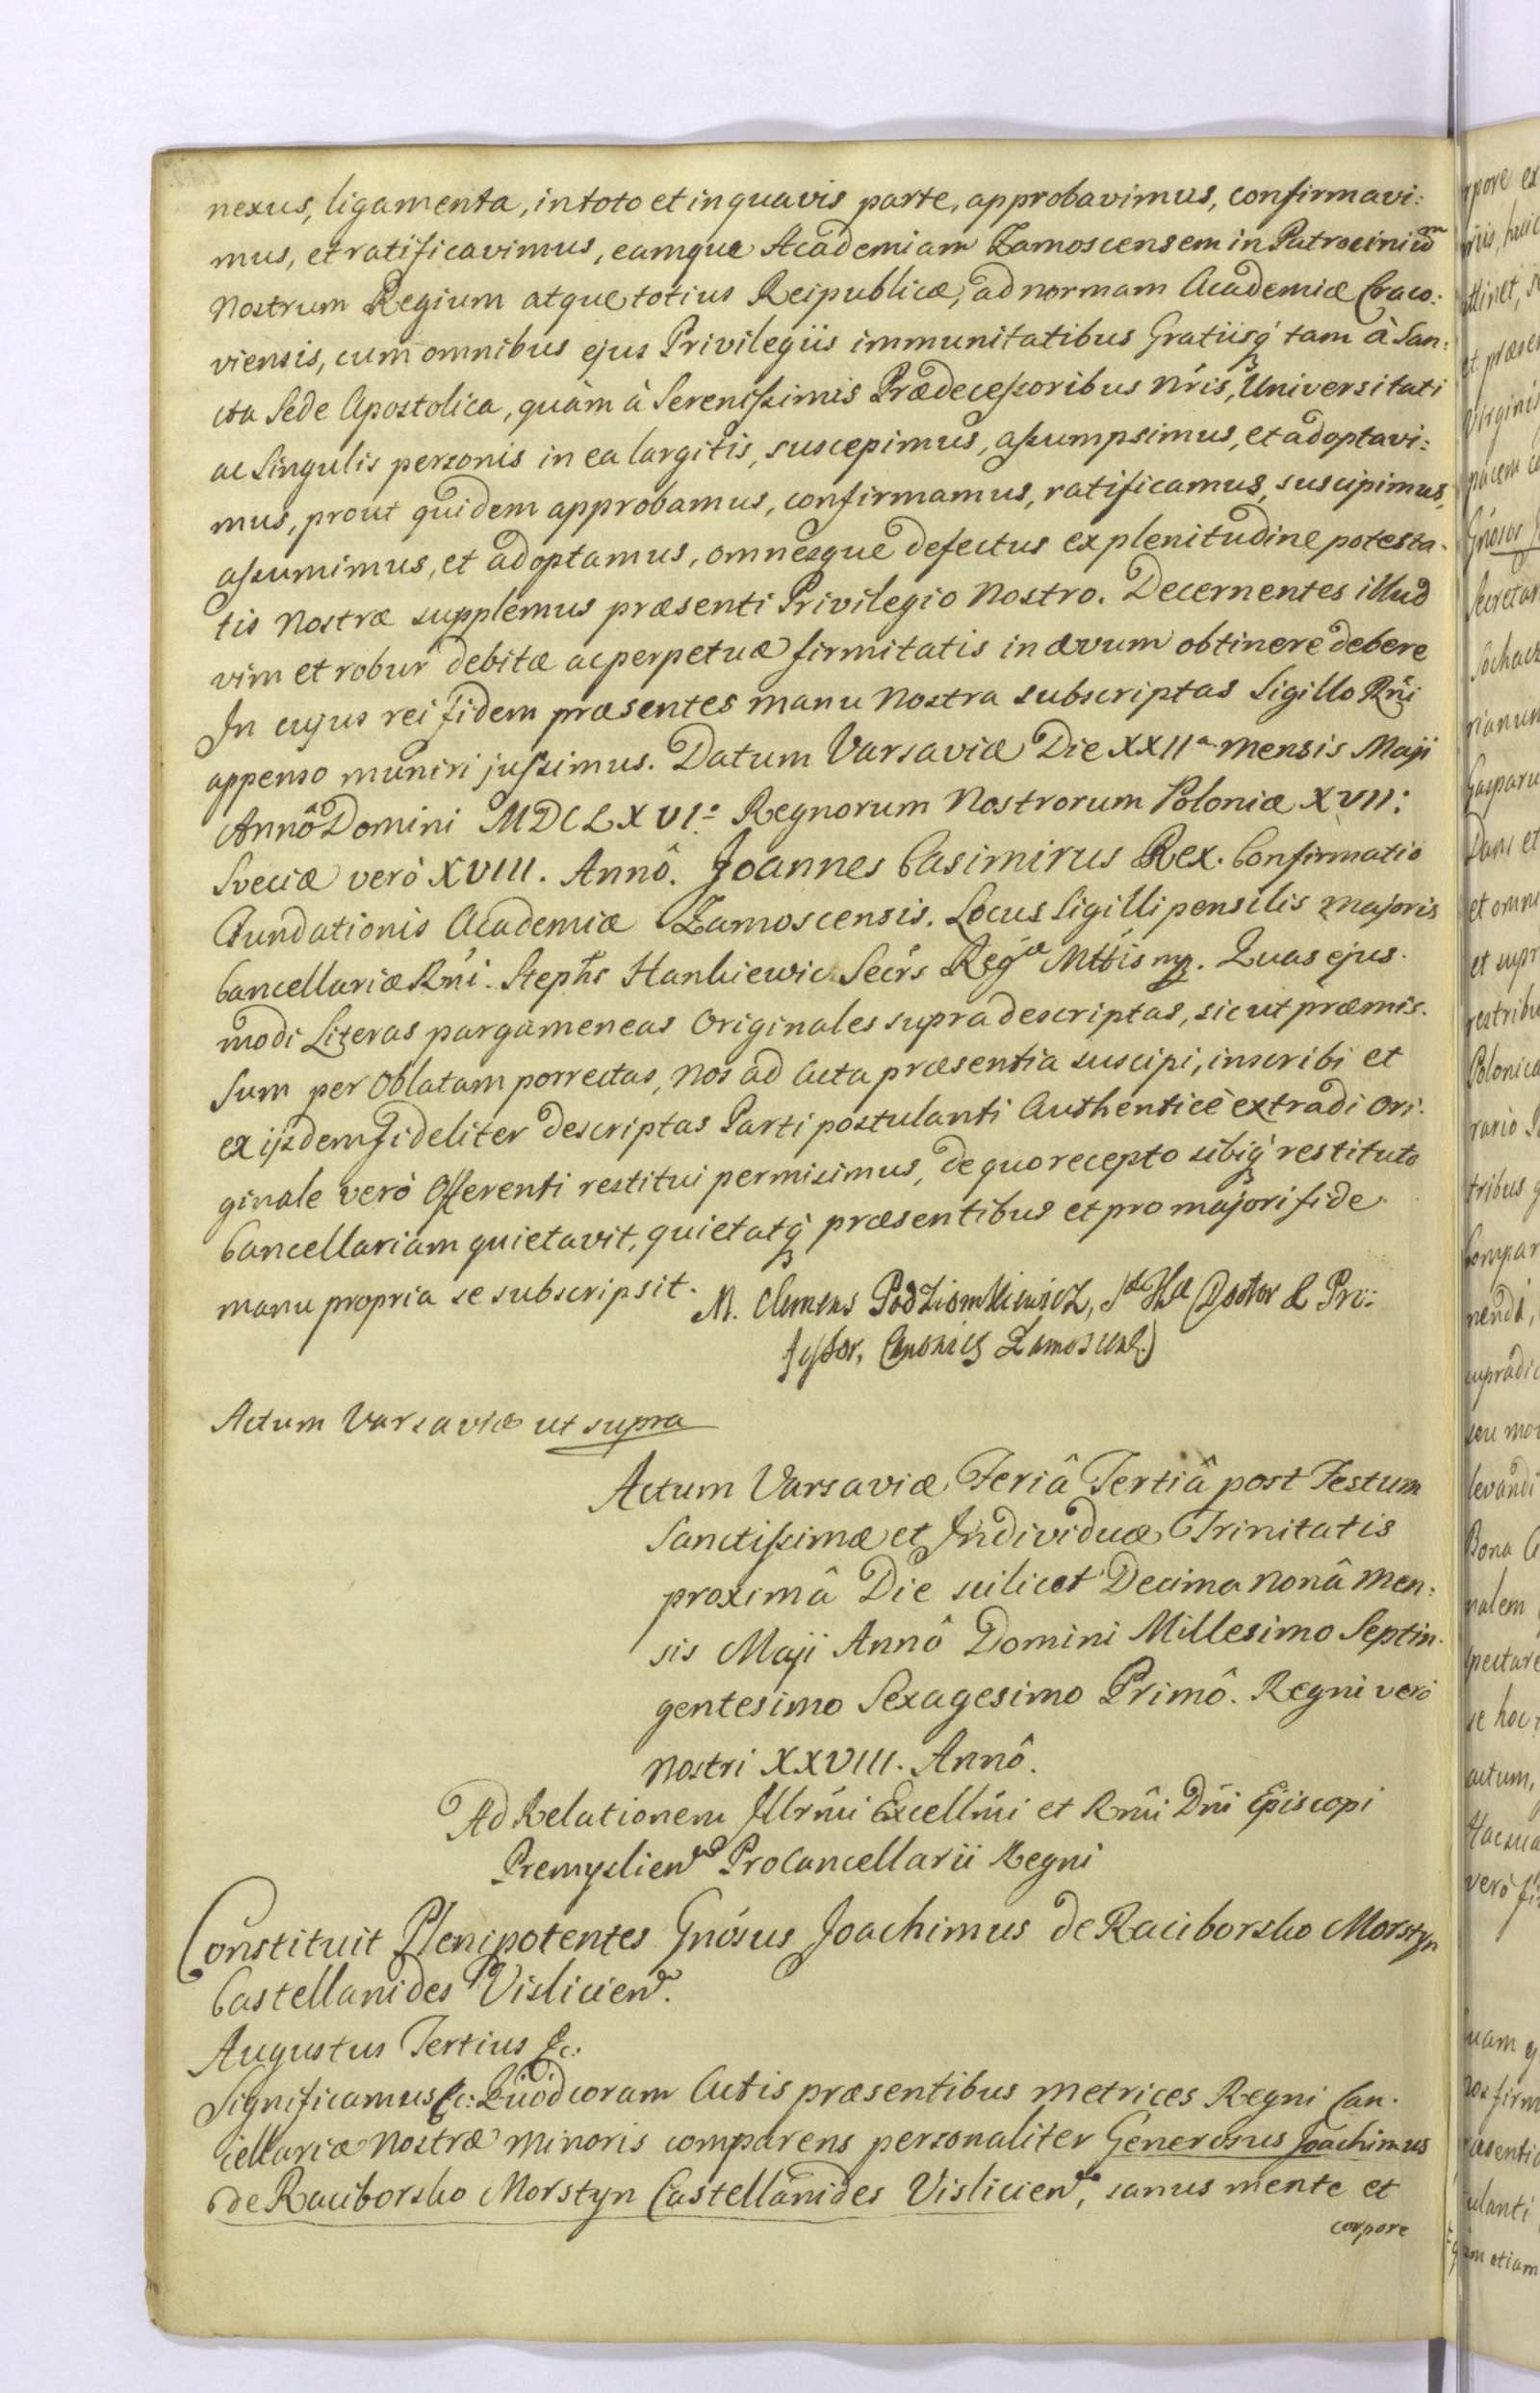 nexus, ligamenta, in toto et in quavis parte, approbavimus, confirmavi:
mus, et ratificavimus, eamque Academiam Zamoscensem in Patrociniũm
Nostrum Regium atque totius Reipublicæ, ad normam Academiæ Craco:
viensis, cum omnibus ejus Privilegiis immunitatibus Gratiisq́ tam à San:
cta Sede Apostolica, quàm à Serenissimis Prædecessoribus Nr̃is, Universitati
ac Singulis personis in ea largitis, suscepimus, assumpsimus, et adoptavi:
mus, prout quidem approbamus, confirmamus, ratificamus, suscipimus,
assumimus, et adoptamus, omnesque defectus ex plenitudine potesta.
tis Nostræ supplemus præsenti Privilegio Nostro. Decernentes illud
vim et robur debitæ ac perpetuæ firmitatis in ævum obtinere debere
In cujus rei fidem præsentes manu Nostra subscriptas Sigillo Rñi
appenso muniri jussimus. Datum Varsaviæ Die XXIIa mensis Maji
Annô Domini MDCLXVIo Regnorum Nostrorum Poloniæ XVII:
Sveciæ verò XVIII. Annô. Joannes Casimirus Rex. Confirmatio
Fundationis Academiæ Zamoscensis. Locus Sigilli pensilis majoris
Cancellariæ Rñi. Steph̃s Hankiewic Secr̃s Regiæ Mttis mp. Quas ejus.
modi Literas pargameneas Originales supra descriptas, sic ut præmis.
sum per Oblatam porrectas, Nos ad Acta præsentia suscipi, inscribi et
ex ijsdem Fideliter descriptas Parti postulanti Authenticè extradi Ori.
ginale verò Offerenti restitui permisimus, de quo recepto sibiq́ restituto
Cancellariam quietavit, quietatq́ præsentibus et pro majori fide
manu propria se subscripsit. M. Clemens Podziomkiewicz, Doctor & Pro:
fessor, Canonicus Zamoscens.
Actum Varsaviæ ut supra
Actum Varsaviæ Feriâ Tertiâ post Festum
Sanctissimæ et Individuæ Trinitatis
proximâ Die scilicet Decima Nonâ Men:
sis Maji Annô Domini Millesimo Septin.
gentesimo Sexagesimo Primô. Regni verò
Nostri XXVIII. Annô.
Ad Relationem Illrm̃i Excellm̃i et Rm̃i Dñi Episcopi
Premyslien̄ ProCancellarii Regni
Constituit Plenipotentes Gnõsus Joachimus de Raciborsko Morstyn
Castellanides Vislicien̄.
Augustus Tertius &c.
Significamus &c: Quod coram Actis præsentibus Metrices Regni Can.
cellariæ Nostræ Minoris comparens personaliter Generosus Joachimus
de Raciborsko Morstyn Castellanides Vislicien̄, sanus mente et
corpore